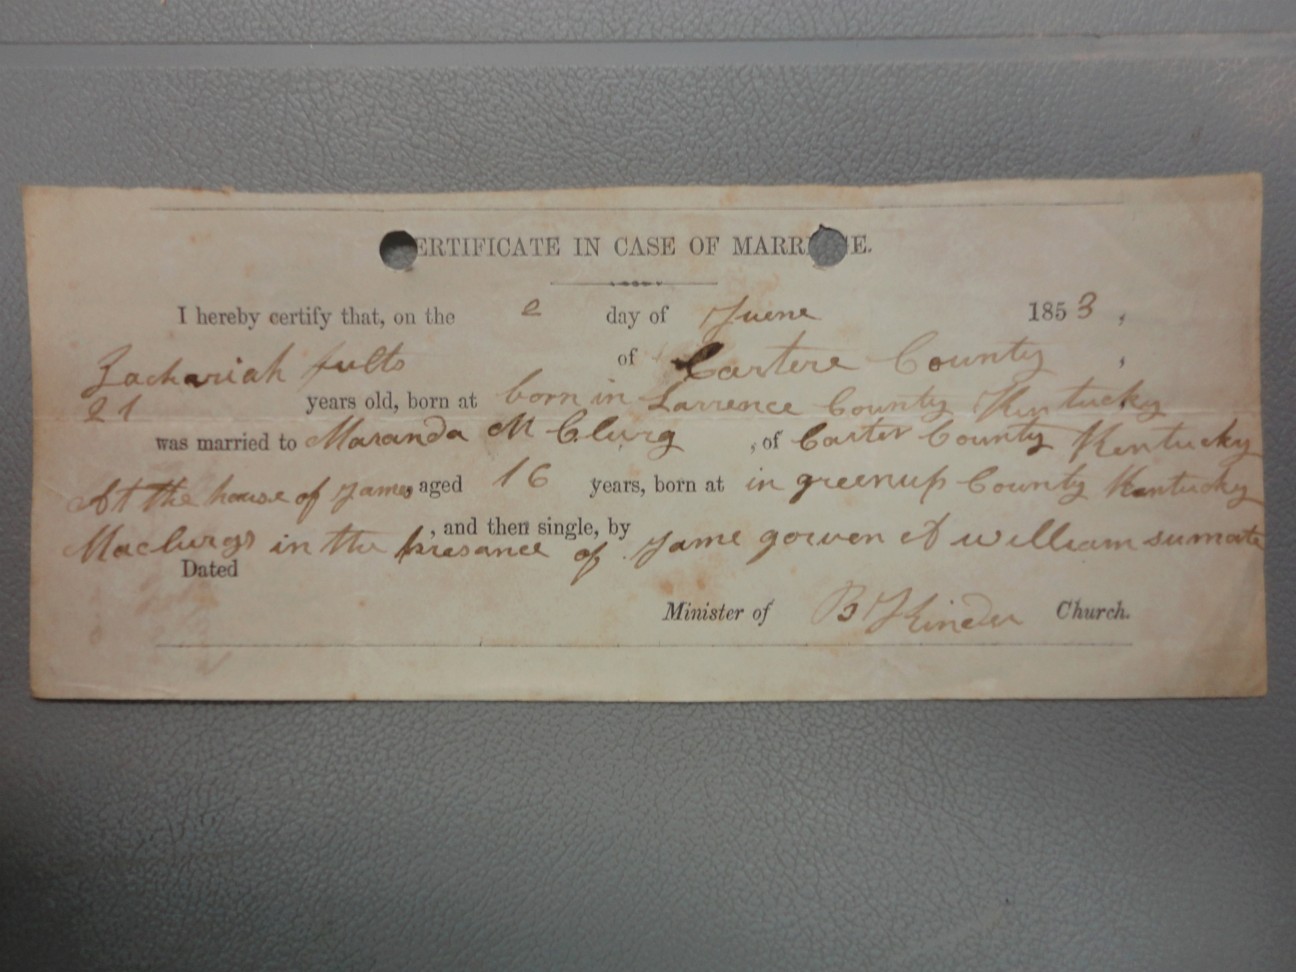 ERTIFICATE IN CASE OF MARR E.
I hereby certify that, on the 2 day of Juene 1853,
Zachariah fults of Cartere County,
21 years old, born at born in Larrence County Kentucky
was married to Maranda M Clurg, of Carter County Kentucky
At the house of James aged 16 years, born at in greenup County Kentucky
Maclurgs, and then single, by in the presance of Jame gowen & william sumate
Dated
Minister of B Kinder Church.